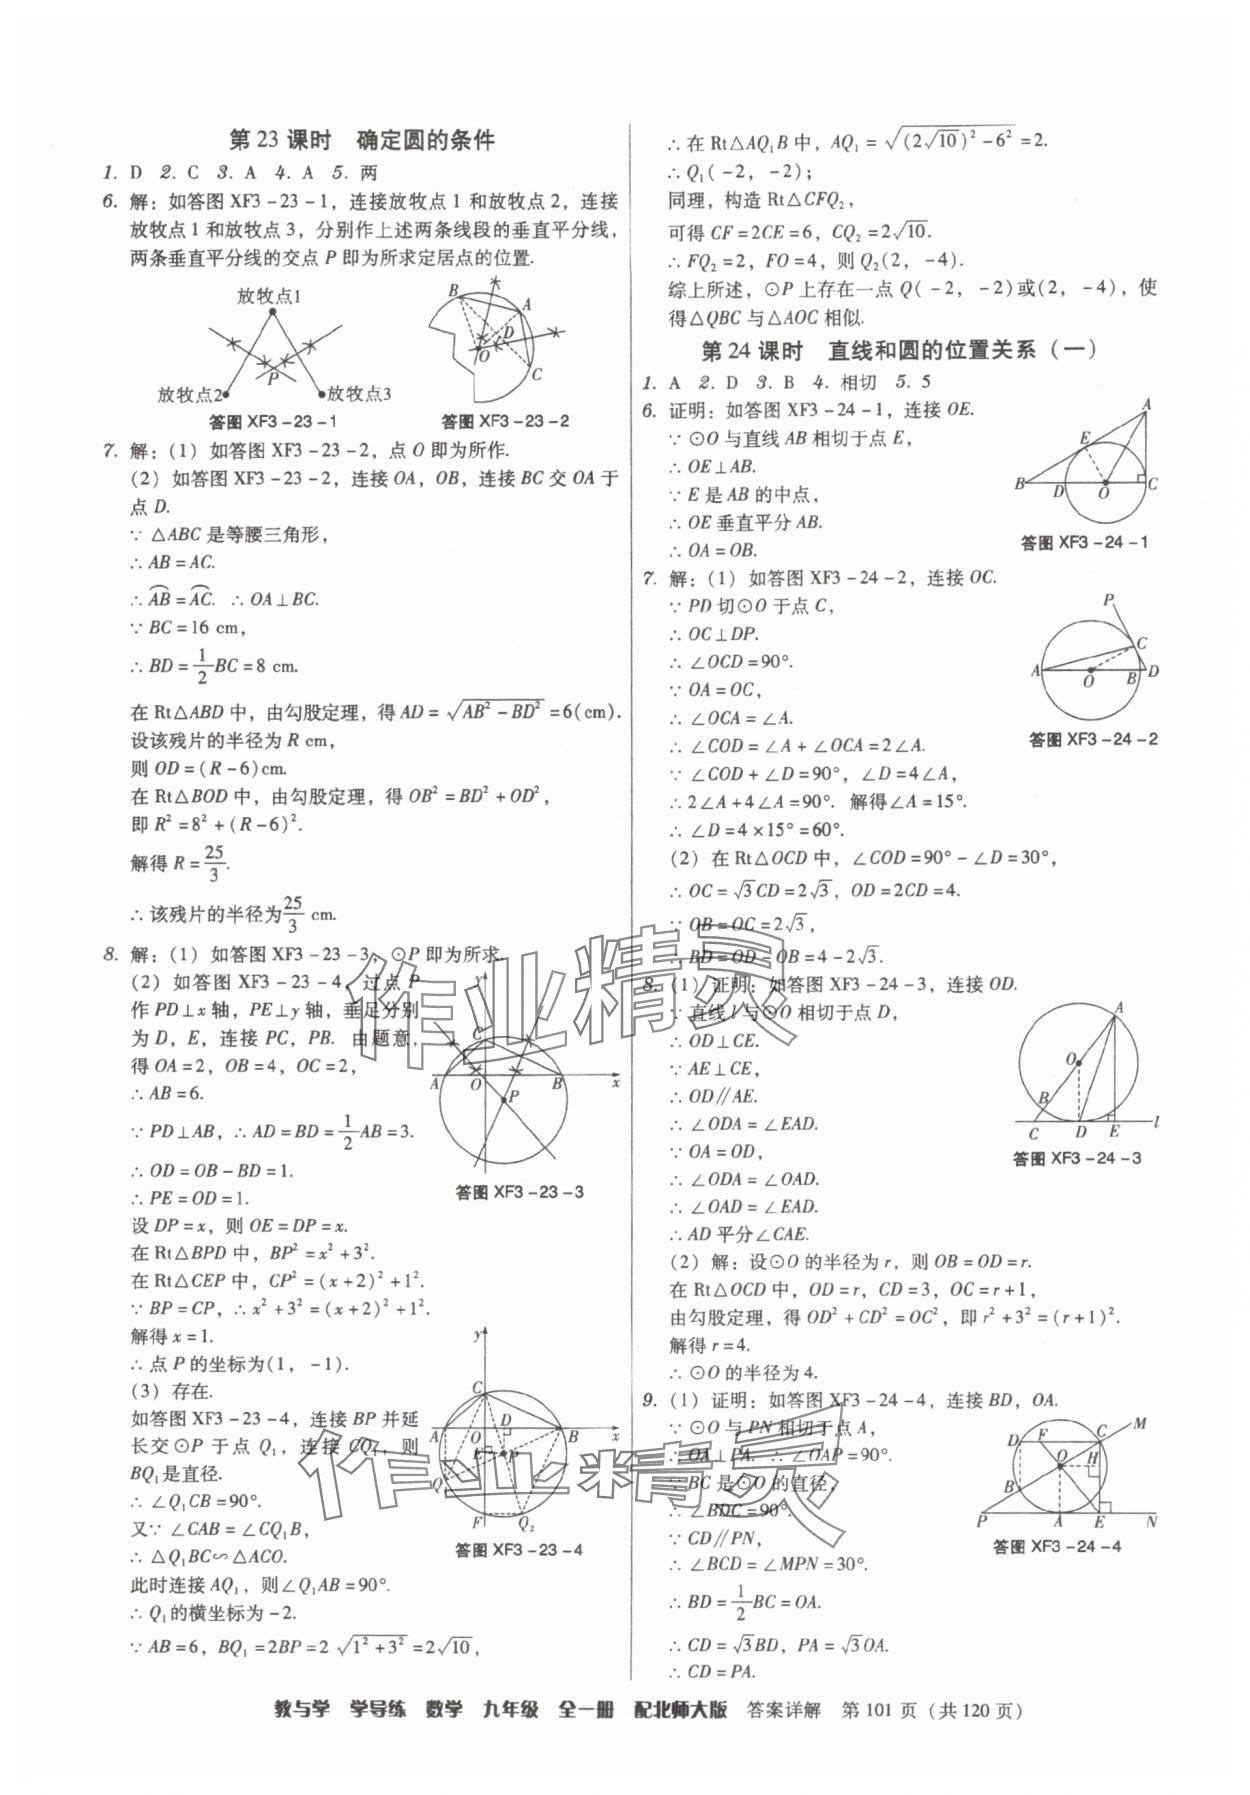 第 23 课时　确定圆的条件
1. D 2. C 3. A 4. A 5. 两
6. 解：如答图 XF3－23－1，连接放牧点 1 和放牧点 2，连接
放牧点 1 和放牧点 3，分别作上述两条线段的垂直平分线，
两条垂直平分线的交点 P 即为所求定居点的位置.
放牧点1
放牧点2
放牧点3
P
答图 XF3－23－1
B
A
D
O
C
答图 XF3－23－2
7. 解：(1) 如答图 XF3－23－2，点 O 即为所作.
(2) 如答图 XF3－23－2，连接 OA，OB，连接 BC 交 OA 于
点 D.
∵ △ABC 是等腰三角形，
∴ AB＝AC.
∴ ⌒AB＝⌒AC. ∴ OA⊥BC.
∵ BC＝16 cm，
∴ BD＝1/2 BC＝8 cm.
在 Rt△ABD 中，由勾股定理，得 AD＝√(AB²－BD²)＝6(cm).
设该残片的半径为 R cm，
则 OD＝(R－6)cm.
在 Rt△BOD 中，由勾股定理，得 OB²＝BD²＋OD²，
即 R²＝8²＋(R－6)².
解得 R＝25/3.
∴ 该残片的半径为25/3 cm.
8. 解：(1) 如答图 XF3－23－3，⊙P 即为所求.
(2) 如答图 XF3－23－4，过点 P
作 PD⊥x 轴，PE⊥y 轴，垂足分别
为 D，E，连接 PC，PB. 由题意，
得 OA＝2，OB＝4，OC＝2，
∴ AB＝6.
∵ PD⊥AB，∴ AD＝BD＝1/2 AB＝3.
∴ OD＝OB－BD＝1.
∴ PE＝OD＝1.
y
C
A
O
B
x
P
答图 XF3－23－3
设 DP＝x，则 OE＝DP＝x.
在 Rt△BPD 中，BP²＝x²＋3².
在 Rt△CEP 中，CP²＝(x＋2)²＋1².
∵ BP＝CP，∴ x²＋3²＝(x＋2)²＋1².
解得 x＝1.
∴ 点 P 的坐标为(1，－1).
(3) 存在.
如答图 XF3－23－4，连接 BP 并延
长交⊙P 于点 Q₁，连接 CQ₁，则
BQ₁是直径.
∴ ∠Q₁CB＝90°.
又∵ ∠CAB＝∠CQ₁B，
∴ △Q₁BC∽△ACO.
y
C
D
A
O
B
x
E
P
F
Q₂
答图 XF3－23－4
此时连接 AQ₁，则∠Q₁AB＝90°.
∴ Q₁的横坐标为－2.
∵ AB＝6，BQ₁＝2BP＝2√(1²＋3²)＝2√10，
∴ 在 Rt△AQ₁B 中，AQ₁＝√((2√10)²－6²)＝2.
∴ Q₁(－2，－2)；
同理，构造 Rt△CFQ₂，
可得 CF＝2CE＝6，CQ₂＝2√10.
∴ FQ₂＝2，FO＝4，则 Q₂(2，－4).
综上所述，⊙P 上存在一点 Q(－2，－2)或(2，－4)，使
得△QBC 与△AOC 相似.
第 24 课时　直线和圆的位置关系（一）
1. A 2. D 3. B 4. 相切 5. 5
6. 证明：如答图 XF3－24－1，连接 OE.
∵ ⊙O 与直线 AB 相切于点 E，
∴ OE⊥AB.
∵ E 是 AB 的中点，
∴ OE 垂直平分 AB.
∴ OA＝OB.
A
E
B
D
O
C
答图 XF3－24－1
7. 解：(1) 如答图 XF3－24－2，连接 OC.
∵ PD 切⊙O 于点 C，
∴ OC⊥DP.
∴ ∠OCD＝90°.
∵ OA＝OC，
∴ ∠OCA＝∠A.
∴ ∠COD＝∠A＋∠OCA＝2∠A.
∵ ∠COD＋∠D＝90°，∠D＝4∠A，
∴ 2∠A＋4∠A＝90°. 解得∠A＝15°.
∴ ∠D＝4×15°＝60°.
P
C
A
O
B
D
答图 XF3－24－2
(2) 在 Rt△OCD 中，∠COD＝90°－∠D＝30°，
∴ OC＝√3CD＝2√3，OD＝2CD＝4.
∵ OB＝OC＝2√3，
∴ BD＝OD－OB＝4－2√3.
8. (1) 证明：如答图 XF3－24－3，连接 OD.
∵ 直线 l 与⊙O 相切于点 D，
∴ OD⊥CE.
∵ AE⊥CE，
∴ OD∥AE.
∴ ∠ODA＝∠EAD.
∵ OA＝OD，
∴ ∠ODA＝∠OAD.
∴ ∠OAD＝∠EAD.
∴ AD 平分∠CAE.
A
O
B
C
D
E
l
答图 XF3－24－3
(2) 解：设⊙O 的半径为 r，则 OB＝OD＝r.
在 Rt△OCD 中，OD＝r，CD＝3，OC＝r＋1，
由勾股定理，得 OD²＋CD²＝OC²，即 r²＋3²＝(r＋1)².
解得 r＝4.
∴ ⊙O 的半径为 4.
9. (1) 证明：如答图 XF3－24－4，连接 BD，OA.
∵ ⊙O 与 PN 相切于点 A，
∴ OA⊥PA. ∴ ∠OAP＝90°.
∵ BC 是⊙O 的直径，
∴ ∠BDC＝90°.
∵ CD∥PN，
∴ ∠BCD＝∠MPN＝30°.
∴ BD＝1/2 BC＝OA.
∴ CD＝√3BD，PA＝√3OA.
∴ CD＝PA.
D
F
C
M
O
H
B
P
A
E
N
答图 XF3－24－4
教与学　学导练　数学　九年级　全一册　配北师大版　答案详解　第 101 页（共 120 页）
作业精灵
作业精灵